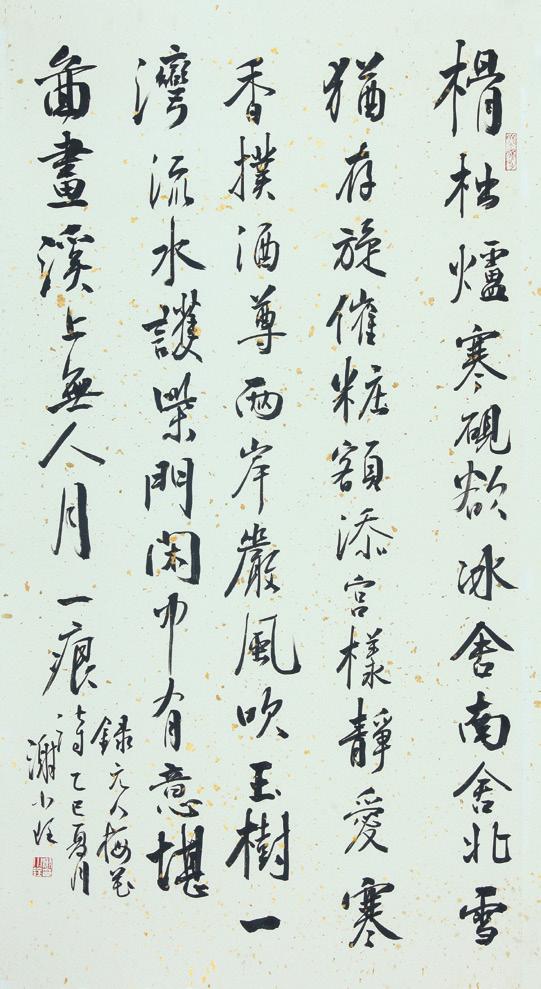 榾柮爐寒硯欲冰舍南舍北雪
猶存旋催粧額添宮樣靜愛寒
香撲酒尊兩岸嚴風吹玉樹一
灣流水護柴門閑中有意堪
啚畫溪上無人月一痕
錄元人梅花
乙巳夏月
謝小